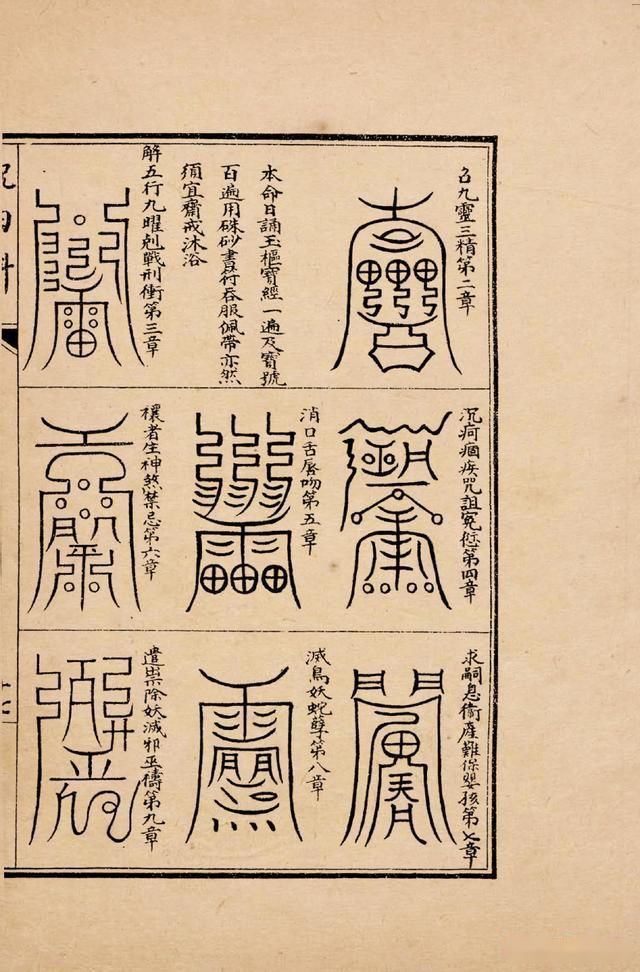 召九靈三精第二章
本命日誦玉樞寶經一遍及寶號
百遍用硃砂書符吞服佩帶亦然
須宜齋戒沐浴
解五行九曜剋戰刑衝第三章
沉疴痼疾咒詛冤愆第四章
消口舌唇吻第五章
禳者生神煞禁忌第六章
求嗣息衛產難保嬰孩第七章
滅鳥妖蛇孽第八章
遣祟除妖滅邪巫禱第九章